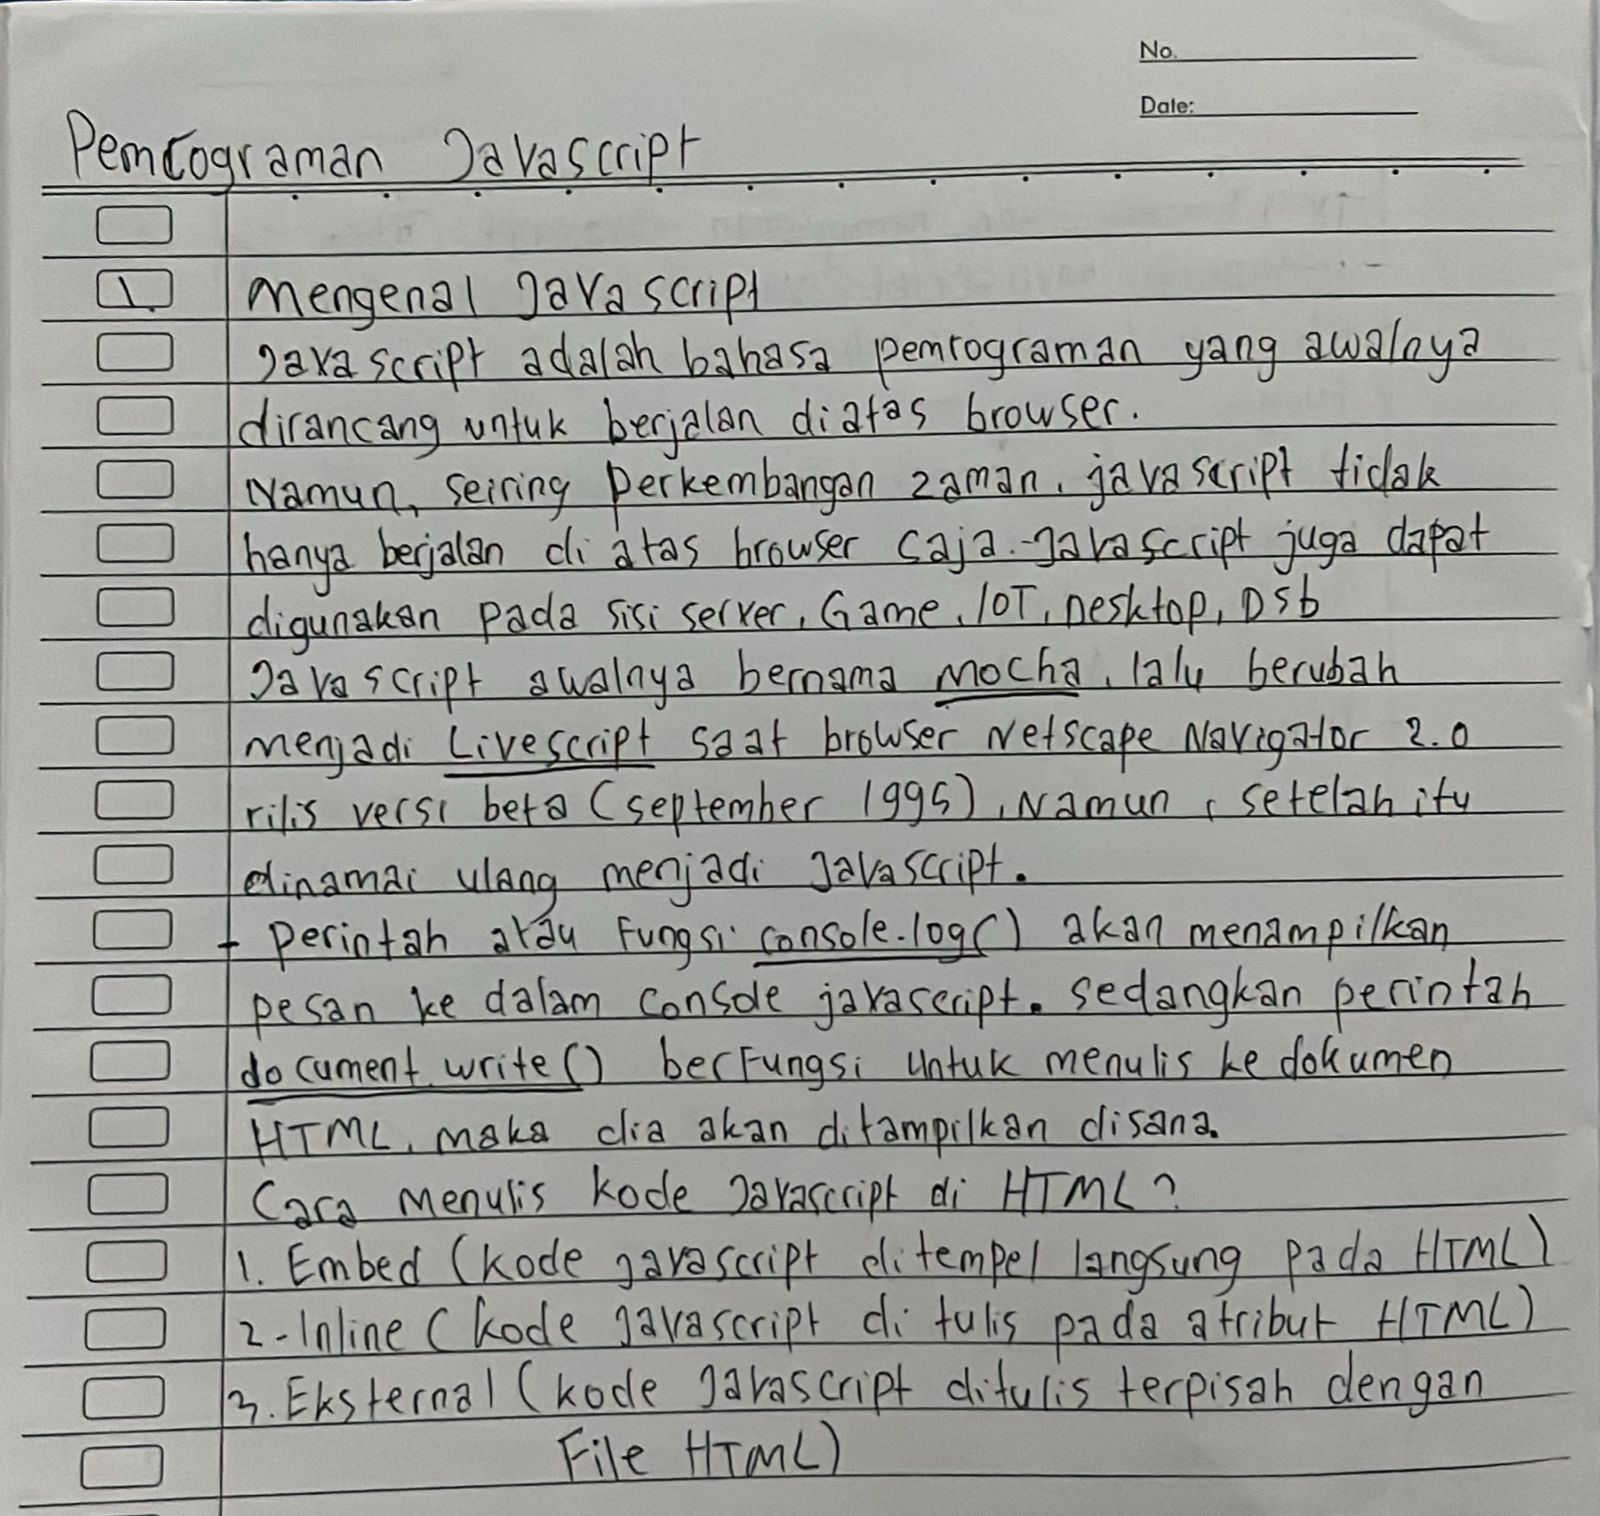 No.
Date:
Pemrograman Javascript
1. Mengenal Javascript
Javascript adalah bahasa pemrograman yang awalnya
dirancang untuk berjalan diatas browser.
Namun, seiring perkembangan zaman, javascript tidak
hanya berjalan di atas browser saja. Javascript juga dapat
digunakan pada sisi server, Game, IOT, Desktop, Dsb
Javascript awalnya bernama Mocha, lalu berubah
menjadi Livescript saat browser Netscape Navigator 2.0
rilis versi beta (september 1995), Namun, setelah itu
dinamai ulang menjadi Javascript.
+ perintah atau Fungsi console.log() akan menampilkan
pesan ke dalam console javascript. sedangkan perintah
document.write() berFungsi untuk menulis ke dokumen
HTML, maka dia akan ditampilkan disana.
Cara Menulis kode Javascript di HTML?
1. Embed (kode javascript di tempel langsung pada HTML)
2-Inline (kode Javascript di tulis pada atribut HTML)
3. Eksternal (kode Javascript ditulis terpisah dengan
File HTML)